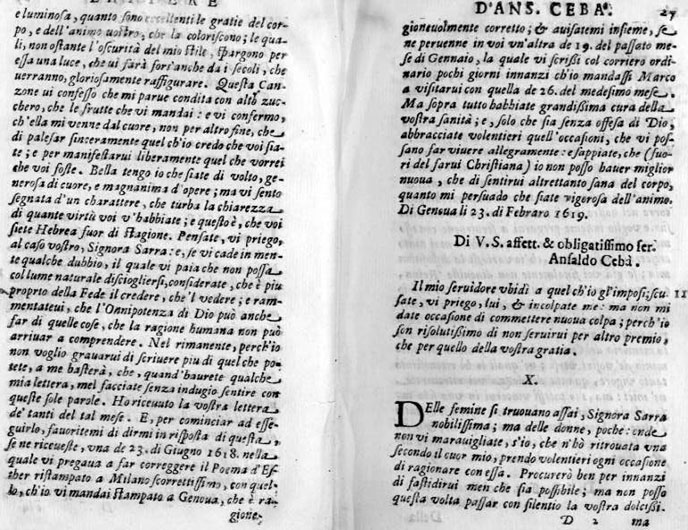 LETTERE
e luminosa, quanto sono eccellenti le gratie del cor-
po, e dell'animo vostro, che la coloriscono; le qua-
li, non ostante l'oscurità del mio stile, spargono per
essa una luce, che vi farà fors'anche da i secoli, che
verranno, gloriosamente raffigurare. Questa Can-
zone vi confesso che mi parue condita con altro zuc-
chero, che le frutte che vi mandai: e vi confermo,
ch'ella mi venne dal cuore, non per altro fine, che
di palesar sinceramente quel ch'io credo che voi sia-
te; e per manifestarui liberamente quel che vorrei
che voi foste. Bella tengo io che siate di volto, ge-
nerosa di cuore, e magnanima d'opere; ma vi sento
segnata d'un charattere, che turba la chiarezza
di quante virtù voi v'habbiate; e questo è, che voi
siete Hebrea fuor di stagione. Pensate, vi priego,
al caso vostro, Signora Sarra: e, se vi cade in men-
te qualche dubbio, il quale vi paia che non possa
col lume naturale disciogliersi, considerate, che è più
proprto della Fede il credere, che'l vedere; e ram-
mentateui, che l'Onnipotenza di Dio può anche
far di quelle cose, che la ragione humana non può
arriuar a comprendere. Nel rimanente, perch'io
non voglio grauarui di scriuere piu di quel che po-
tete, a me basterà, che, quand'haurete qualche
mia lettera, mel facciate senza indugio sentire con
queste sole parole. Ho riceuuto la vostra lettera
de' tanti del tal mese. E, per cominciar ad esse-
guirlo, fauoritemi di dirmi in risposta di questa,
se ne riceueste, una de 23. di Giugno 1618. nella
quale vi pregaua a far correggere il Poema d'Es-
ther ristampato a Milano scorrettissimo, con quel-
lo, ch'io vi mandai stampato a Genoua, che è ra-
gione-
D'ANS. CEBA'. 27
gioneuolmente corretto; & auisatemi insieme, se
ne peruenne in voi vn'altra de 19. del passato me-
se di Gennaio, la quale vi scrissi col corriero ordi-
nario pochi giorni innanzi ch'io mandassi Marco
a visitarui con quella de 26. del medesimo mese.
Ma sopra tutto habbiate grandissima cura della
vostra sanità; e, solo che sia senza offesa di Dio,
abbracciate volentieri quell'occasioni, che vi pos-
sano far viuere allegramente: e sappiate, che (fuo-
ri del farui Christiana) io non posso hauer miglior
nuoua, che di sentirui altrettanto sana del corpo,
quanto mi persuado che siate vigorosa dell'animo.
Di Genoua li 23. di Febraro 1619.
Di V.S. affett. & obligatissimo ser.
Ansaldo Cebà.
Il mio seruidore vbidì a quel ch'io gl'imposi; scu- 11
sate, vi priego, lui, & incolpate me: ma non mi
date occasione di commettere nuoua colpa; perch'io
son risolutissimo di non seruirui per altro premio,
che per quello della vostra gratia.
X.
DElle femine si truouano assai, Signora Sarra
nobilissima; ma delle donne, poche: onde
non vi marauigliate, s'io, che n'hò ritrouata vna
secondo il cuor mio, prendo volentieri ogni occasione
di ragionare con essa. Procurerò ben per innanzi
di fastidirui men che sia possibile; ma non posso
questa volta passar con silentio la vostra dolcissi-
D 2 ma